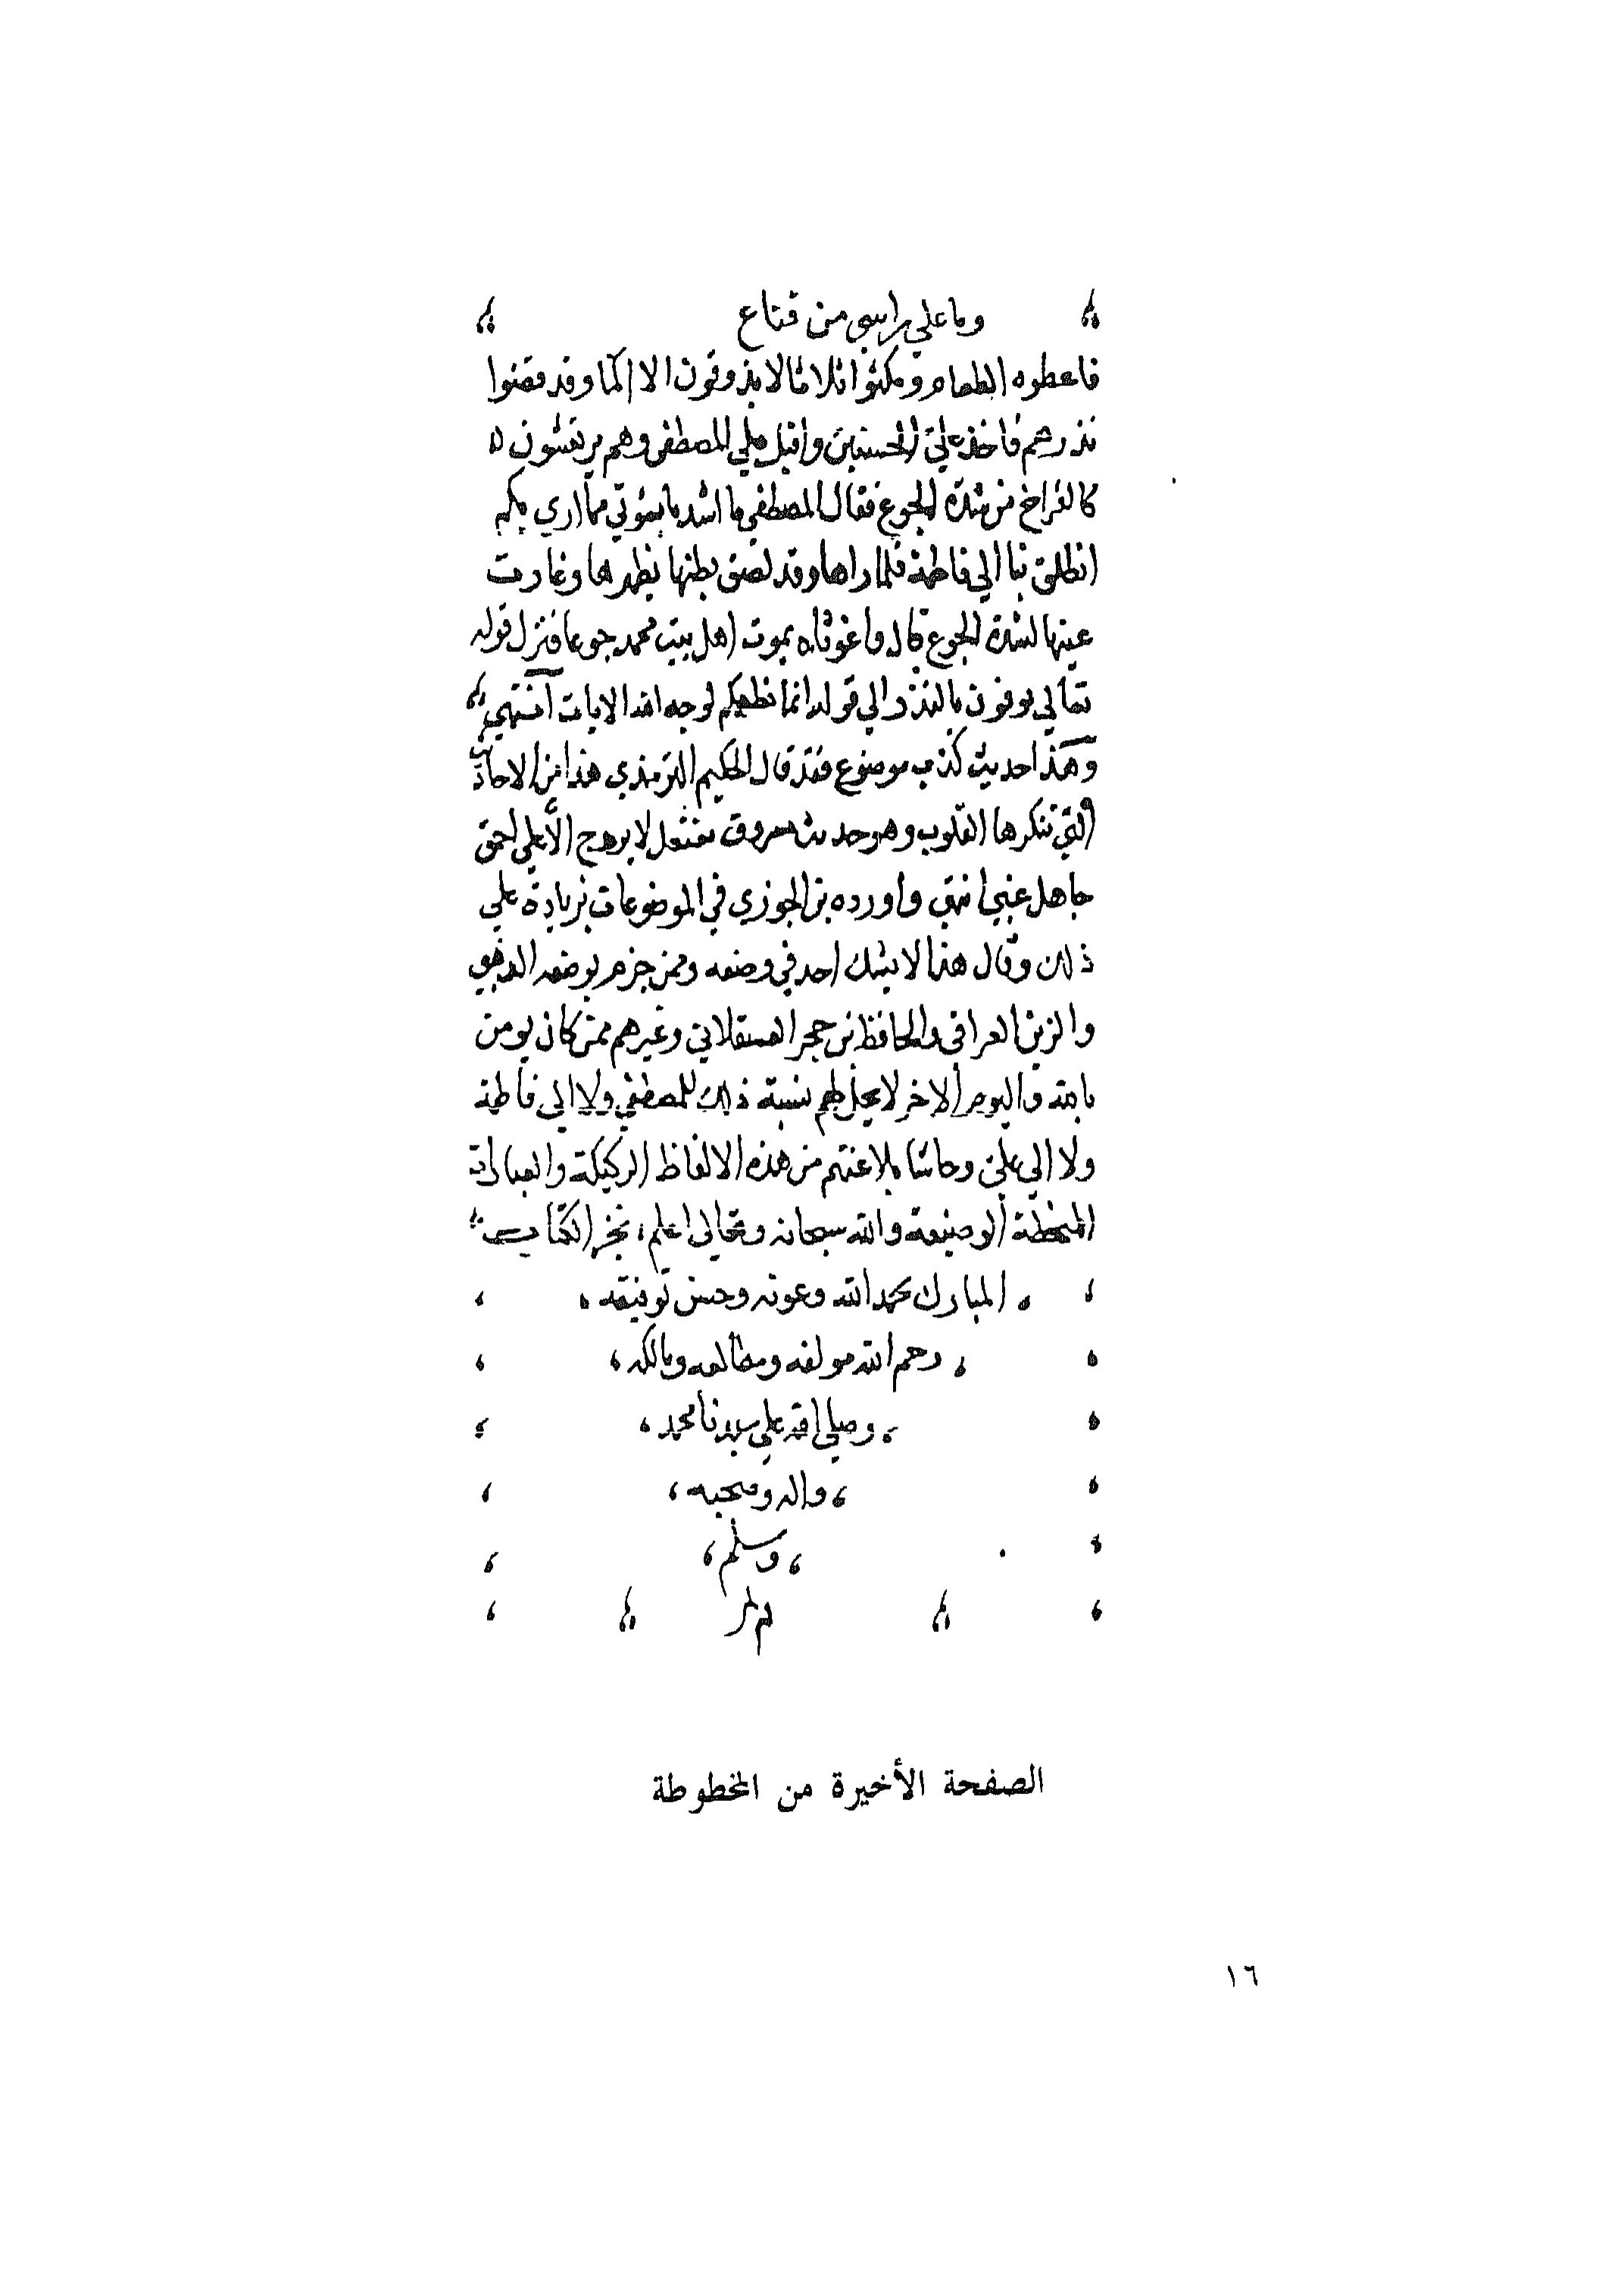 وما علي راسي من قناع
فاعطوه الطعام ومكثوا ثلاثا لا يذوقون الا الما وقد قضوا
نذرهم فاخذ علي الحسنين واقبل علي المصطفي وهم يرتعشون
كالفراخ من شدة الجوع فقال المصطفي ما اشد ما يسوني مما اري بكم
انطلق بنا الي فاطمة فلما راها وقد لصق بطنها بظهرها وغارت
عينها لشدة الجوع قال واغوثاه يموت اهل بيت محمد جوعا فنزل قوله
تعالي يوفون بالنذر الي قوله انما نطعمكم لوجه الله الايات انتهي
وهذا حديث كذب موضوع فقد قال الحكيم الترمذي هذا من الاحاديث
التي تنكرها القلوب وهو حديث مسروق مفتعل لا يروج الا علي احمق
جاهل غبي انتهي واورده بن الجوزي في الموضوعات بزيادة علي
ذلك وقال هذا لا يشك احد في وضعه وممن جزم بوضعه الذهبي
والزين العراقي والحافظ بن حجر العسقلاني وغيرهم ممن كان يومن
بالله واليوم الاخر لا يحل لهم نسبة ذلك للمصطفي ولا الي فاطمة
ولا الي علي وحاشا بلاغتهم من هذه الالفاظ الركيكة والعبارات
المنحطة الوضيعة والله سبحانه وتعالي اعلم، نجز الكتاب
المبارك بحمد الله وعونه وحسن توفيقه
رحم الله مولفه ومطالعه ومالكه،
وصلي الله علي سيدنا محمد،
واله وصحبه،
وسلم،
الصفحة الأخيرة من المخطوطة
١٦